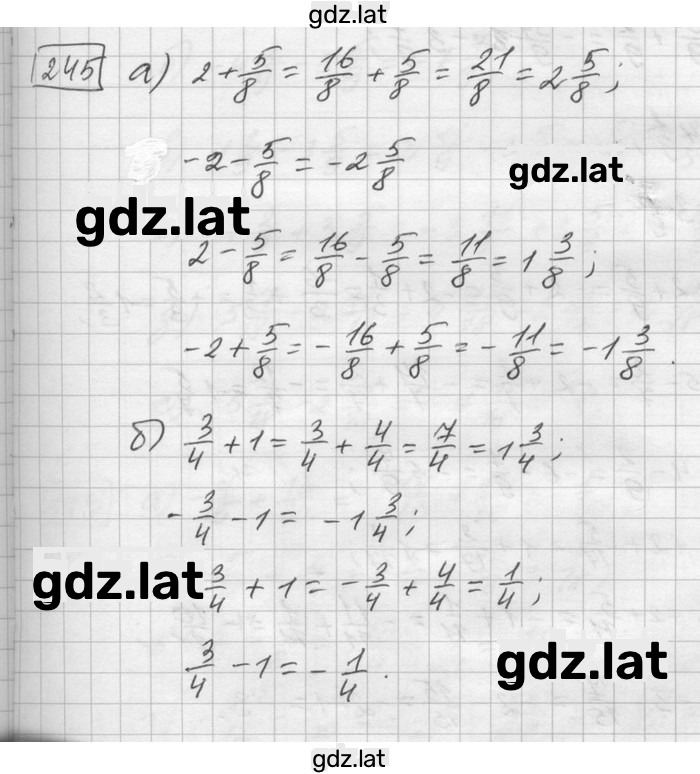 gdz.lat
245 а) 2 + 5/8 = 16/8 + 5/8 = 21/8 = 2 5/8;
- 2 - 5/8 = - 2 5/8
gdz.lat
gdz.lat
2 - 5/8 = 16/8 - 5/8 = 11/8 = 1 3/8;
- 2 + 5/8 = - 16/8 + 5/8 = - 11/8 = - 1 3/8.
б) 3/4 + 1 = 3/4 + 4/4 = 7/4 = 1 3/4;
- 3/4 - 1 = - 1 3/4;
gdz.lat
3/4 + 1 = - 3/4 + 4/4 = 1/4;
3/4 - 1 = - 1/4.
gdz.lat
gdz.lat